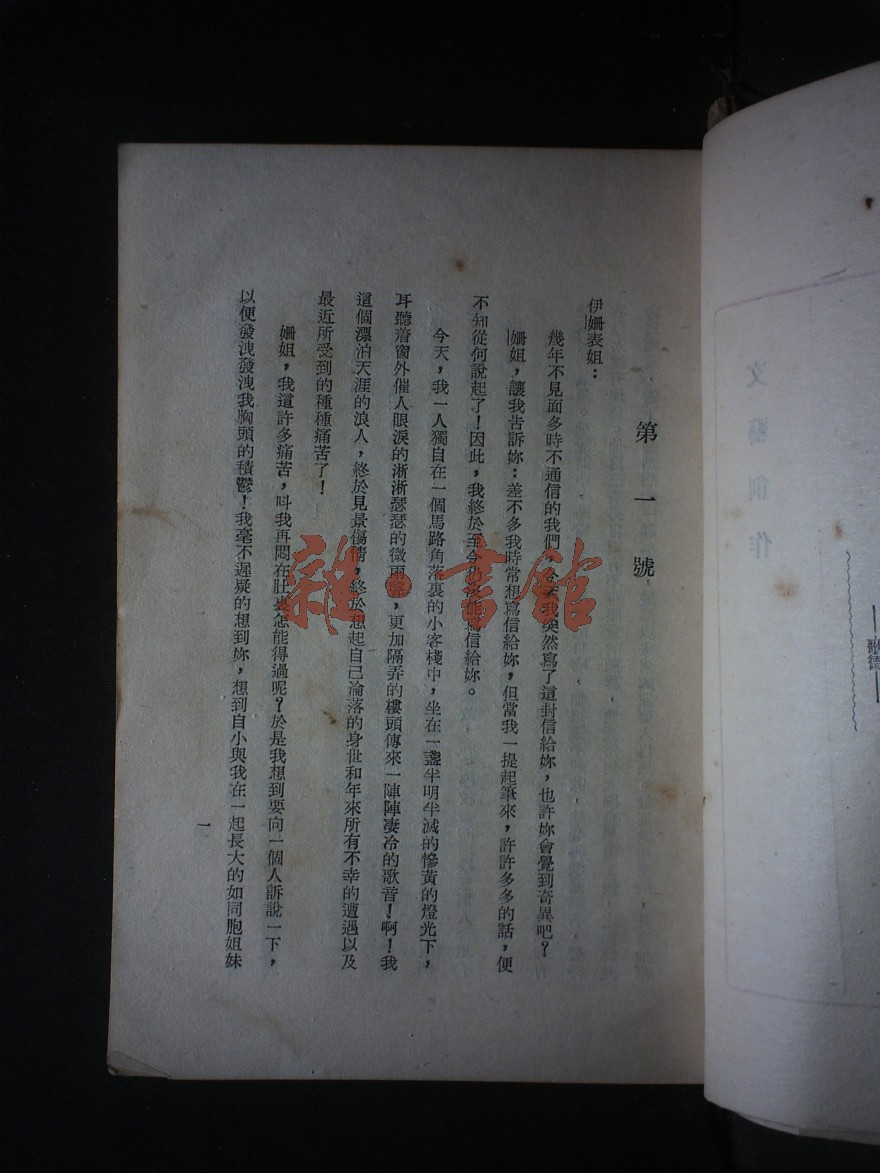 第一號
伊姍表姐：
幾年不見面多時不通信的我們，今天我突然寫了這封信給妳，也許妳會覺到奇異吧？
姍姐，讓我告訴妳：差不多我時常想寫信給妳，但當我一提起筆來，許許多多的話，便
不知從何說起了！因此，我終於至今仍沒能寫信給妳。
今天，我一人獨自在一個馬路角落裏的小客棧中，坐在一盞半明半滅的慘黃的燈光下，
耳聽着窗外催人眼淚的淅淅瑟瑟的微雨聲，更加隔弄的樓頭傳來一陣陣凄冷的歌音！啊！我
這個漂泊天涯的浪人，終於見景傷情，終於想起自己淪落的身世和年來所有不幸的遭遇以及
最近所受到的種種痛苦了！
姍姐，我這許多痛苦，叫我再悶在肚裏怎能得過呢？於是我想到要向一個人訴說一下，
以便發洩發洩我胸頭的積鬱！我毫不遲疑的想到妳，想到自小與我在一起長大的如同胞姐妹
一
文藝創作
雜·書館